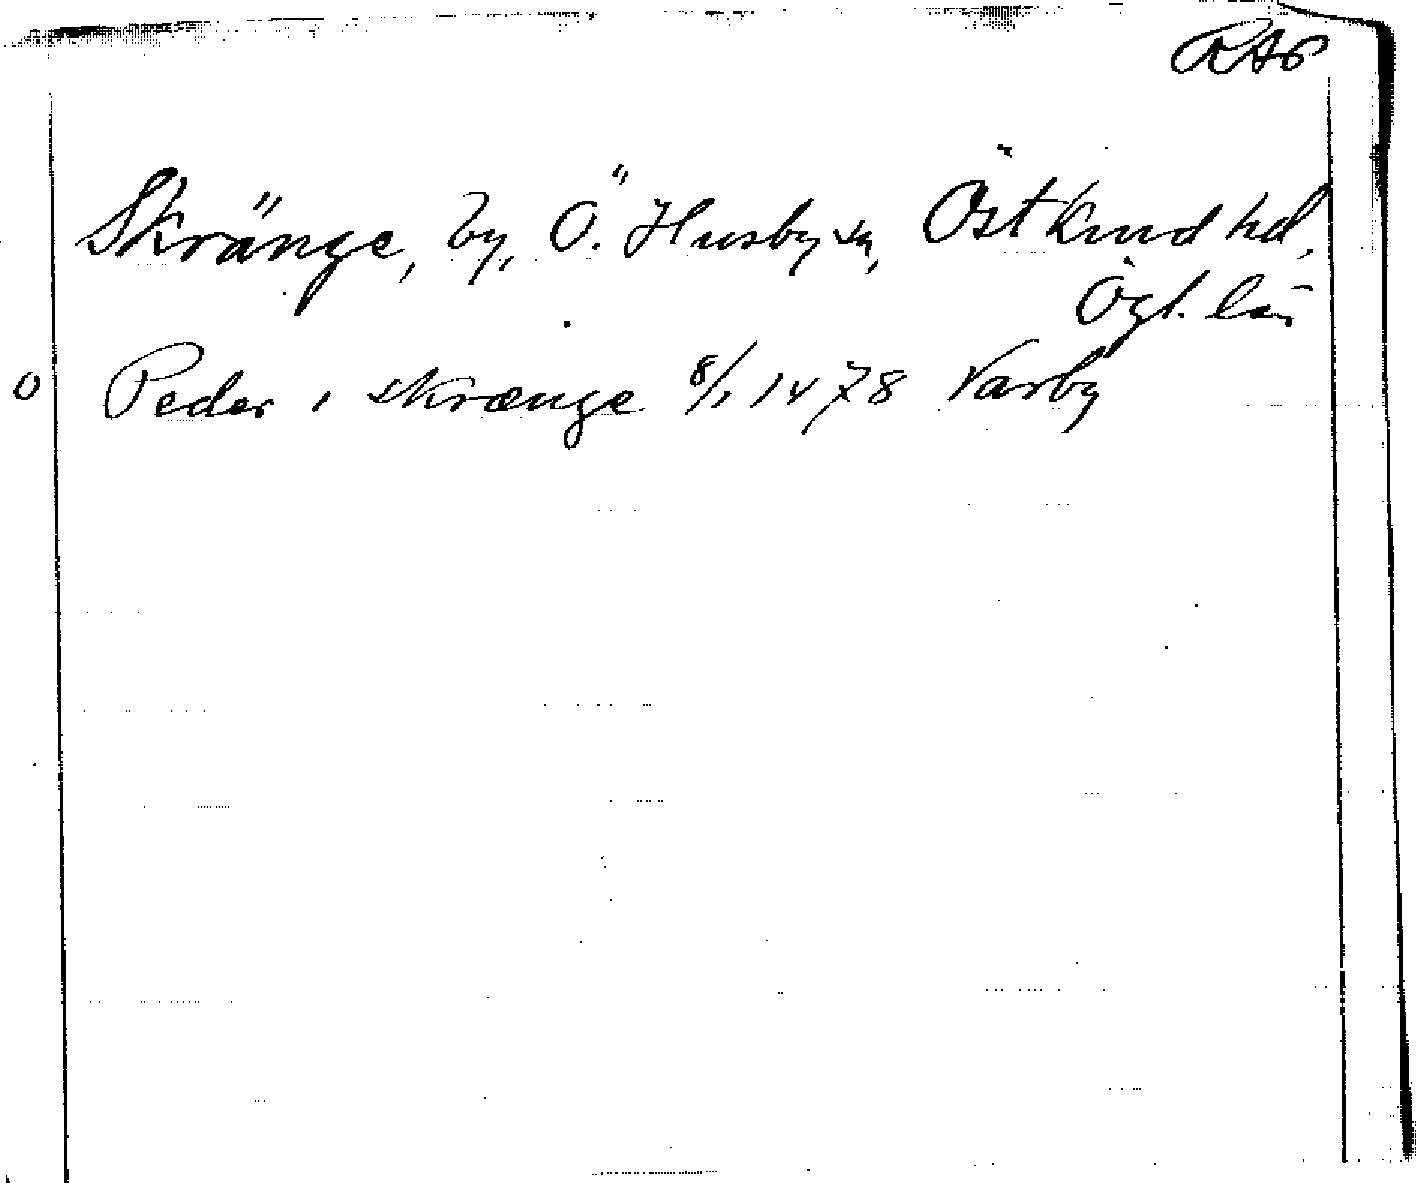 RAp
Skränge, by, Ö. Husby sn, Östkind hd.
Ögl. län
o Peder i skrænge 8/1 1478 Varby